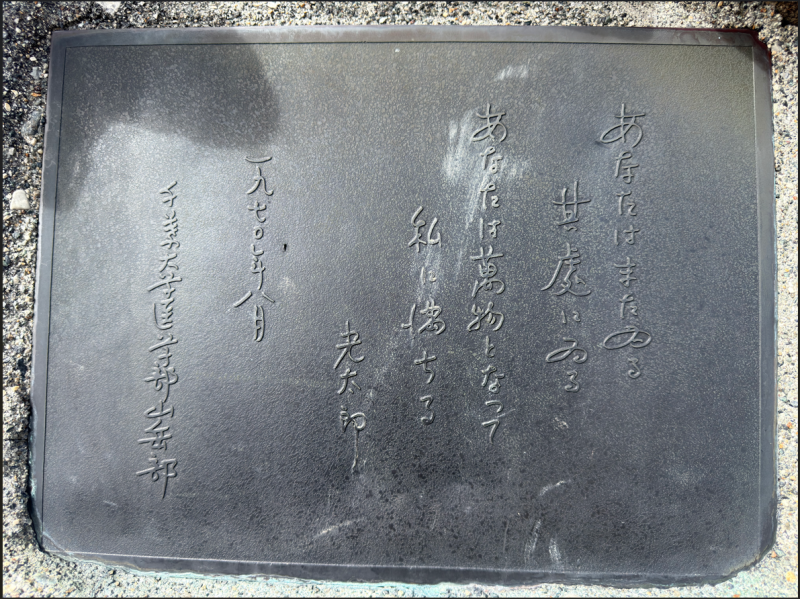 あなたはまだゐる
其處にゐる
あなたは萬物となつて
私に満ちる
光太郎
一九七〇年八月
千葉大学医学部山岳部